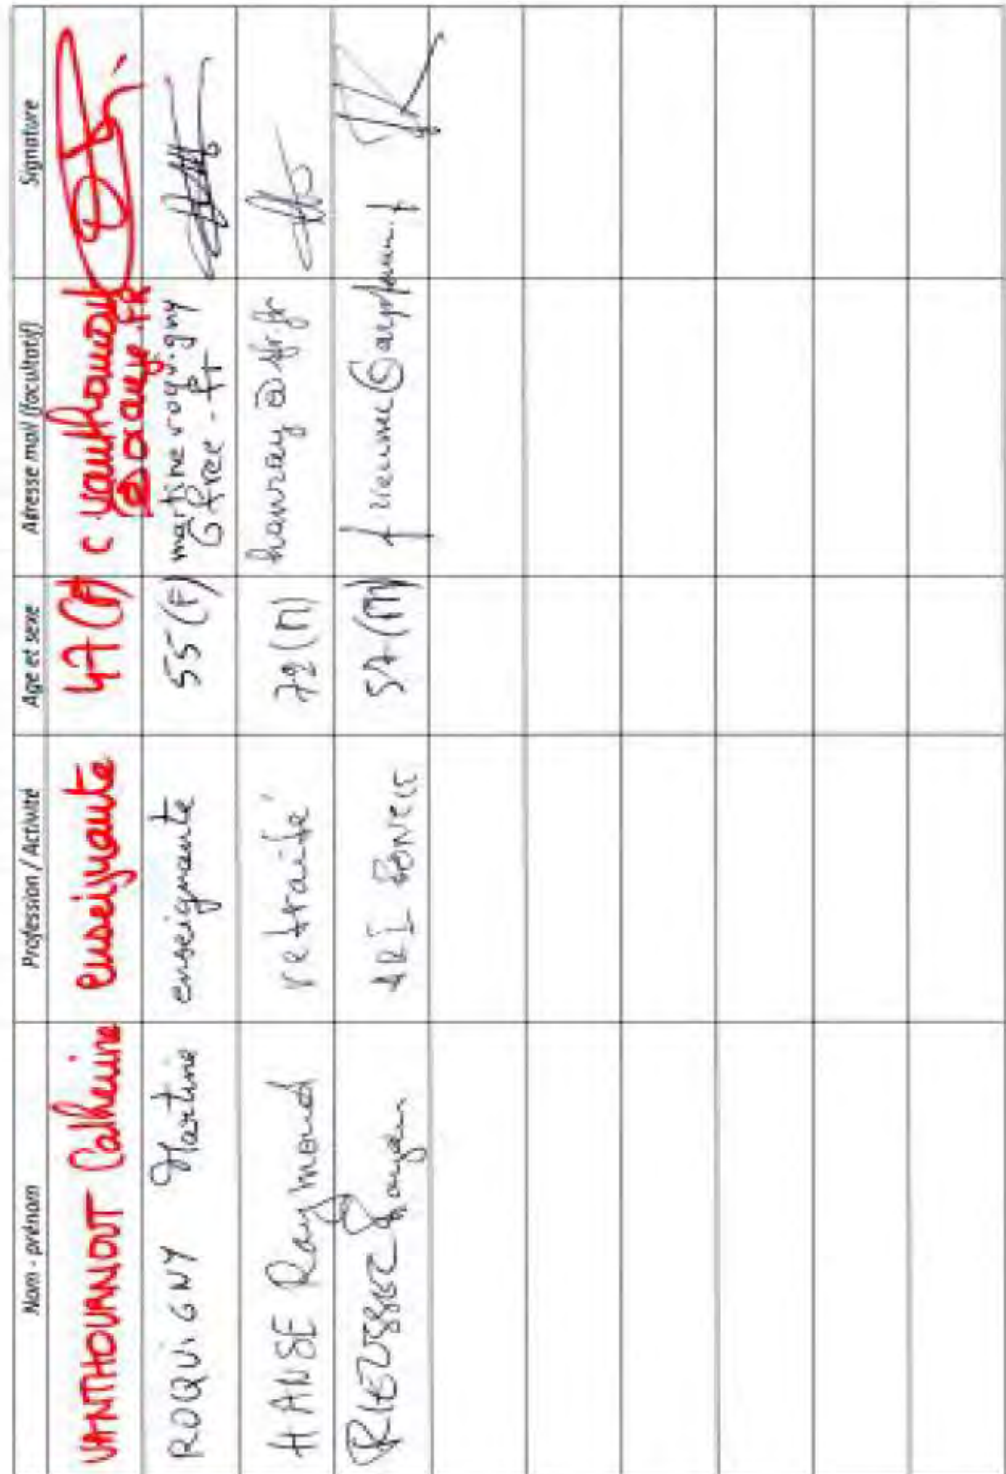 Nom - prénom Profession / Activité Age et sexe Adresse mail (facultatif) Signature
VANTHOURNOUT Catherine enseignante 47 (F) c vanthournout
@orange.FR
ROQUIGNY Martine enseignante 55 (F) martine roquigny
@free.fr
HANSE Raymond retraité 72 (M) @sfr.fr
57 (M)